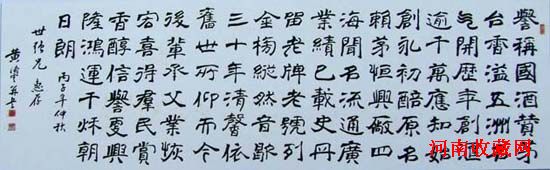 譽稱國酒贊茅
台香溢五洲名
開歷年創
逾千萬應知始
創永初酷原名
賴茅恒興廠四
海聞名流通廣
業績已載史丹
留老牌老號列
金榜縱然音歇
三十年清馨依
舊世所仰而今
後輩承父業恢
宏喜得羣民賞
香醇信譽興
隆鴻運千秌朝
日朗 丙子年仲秋
世兄 惠存
黄
河南收藏网